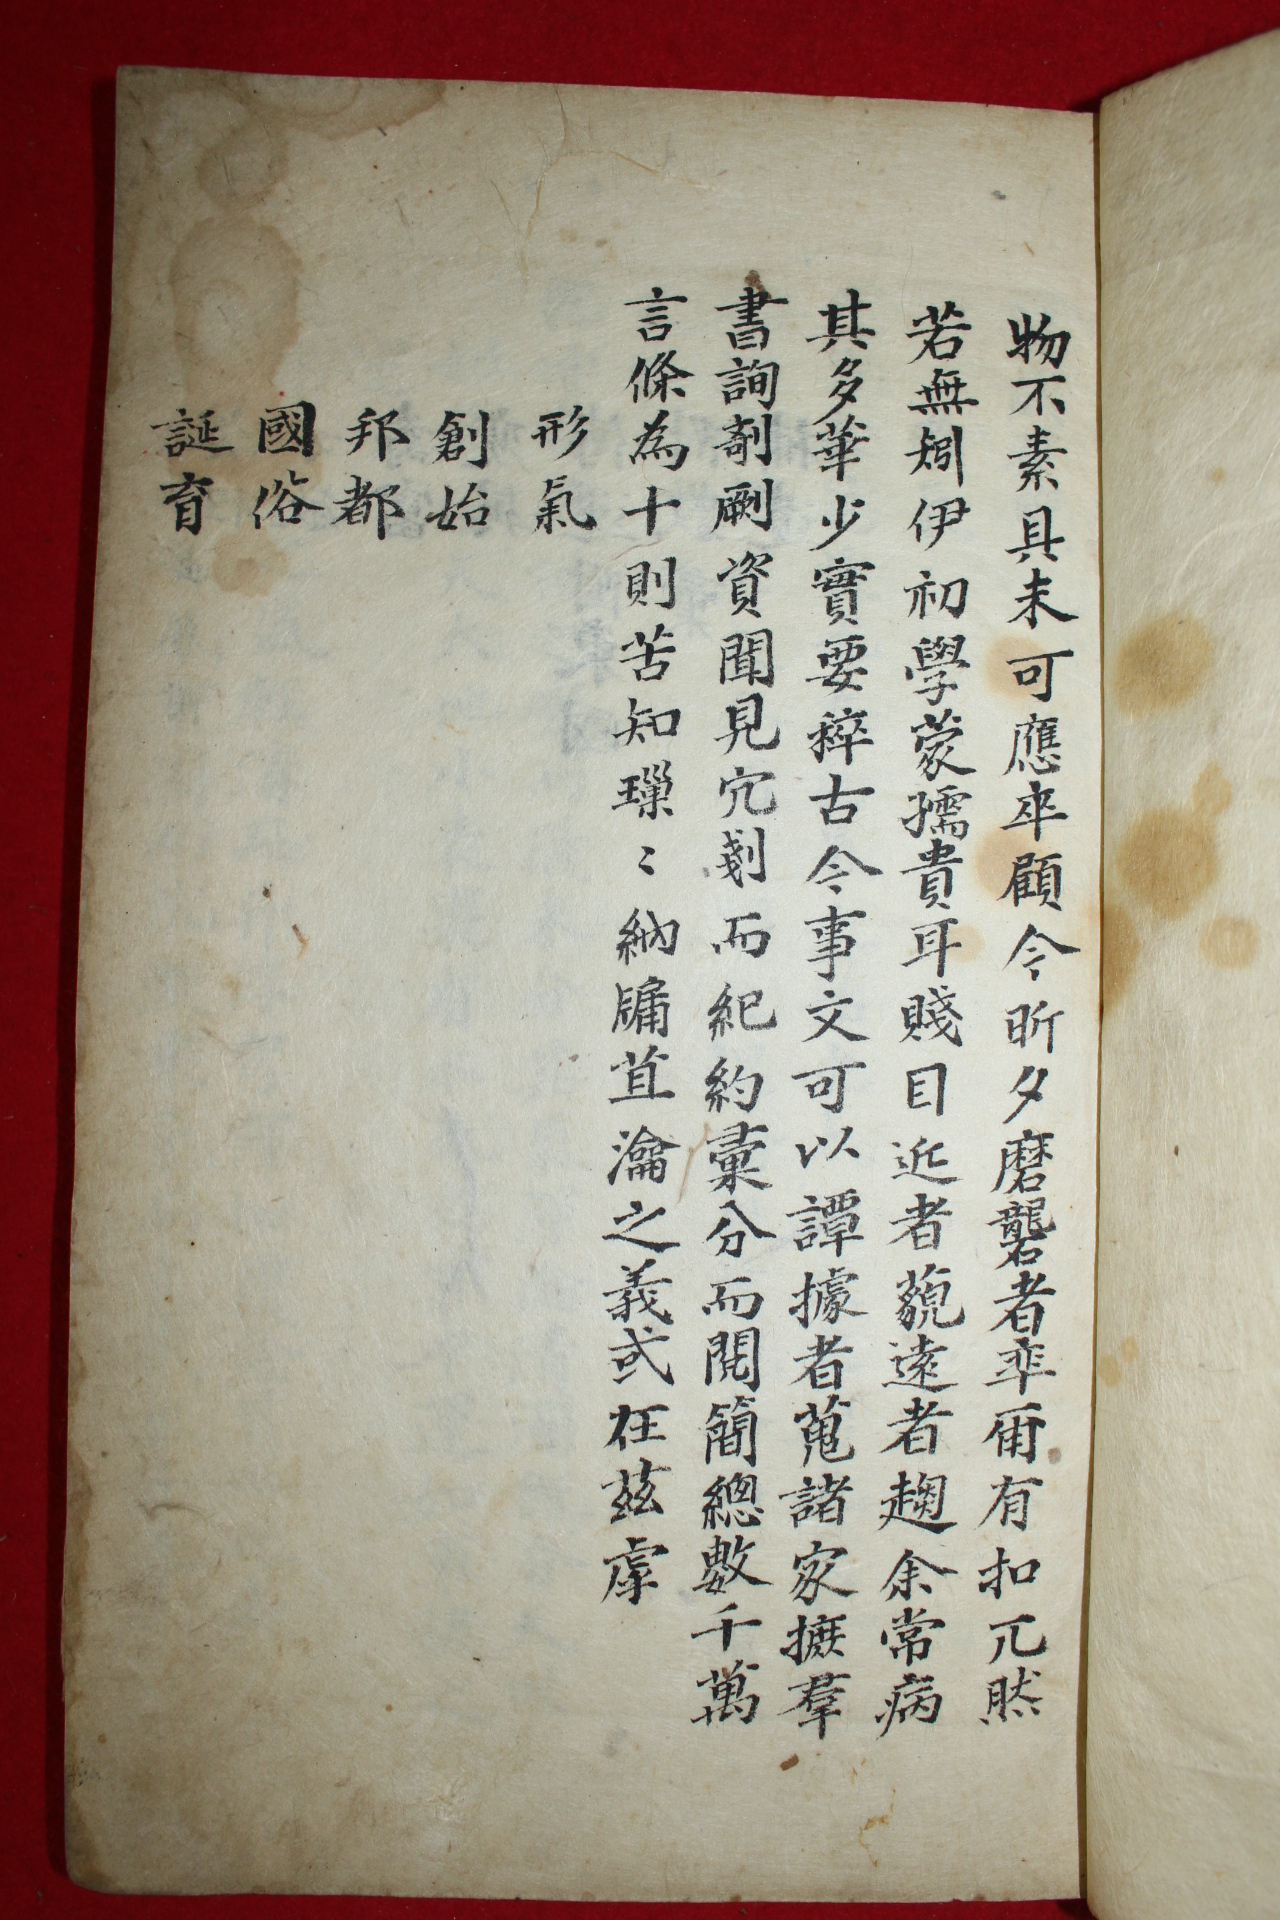 物不素具未可應卒顧今昕夕磨礱者率爾有扣兀然
若無矧伊初學蒙孺貴耳賤目近者藐遠者趨余常病
其多華少實要稡古今事文可以譚據者蒐諸家摭羣
書詢剞劂資聞見冗剗而紀約彙分而閱簡總數千萬
言條為十則苦知璅〻納牖苴瀹之義或在茲虖
形氣
創始
邦都
國俗
誕育